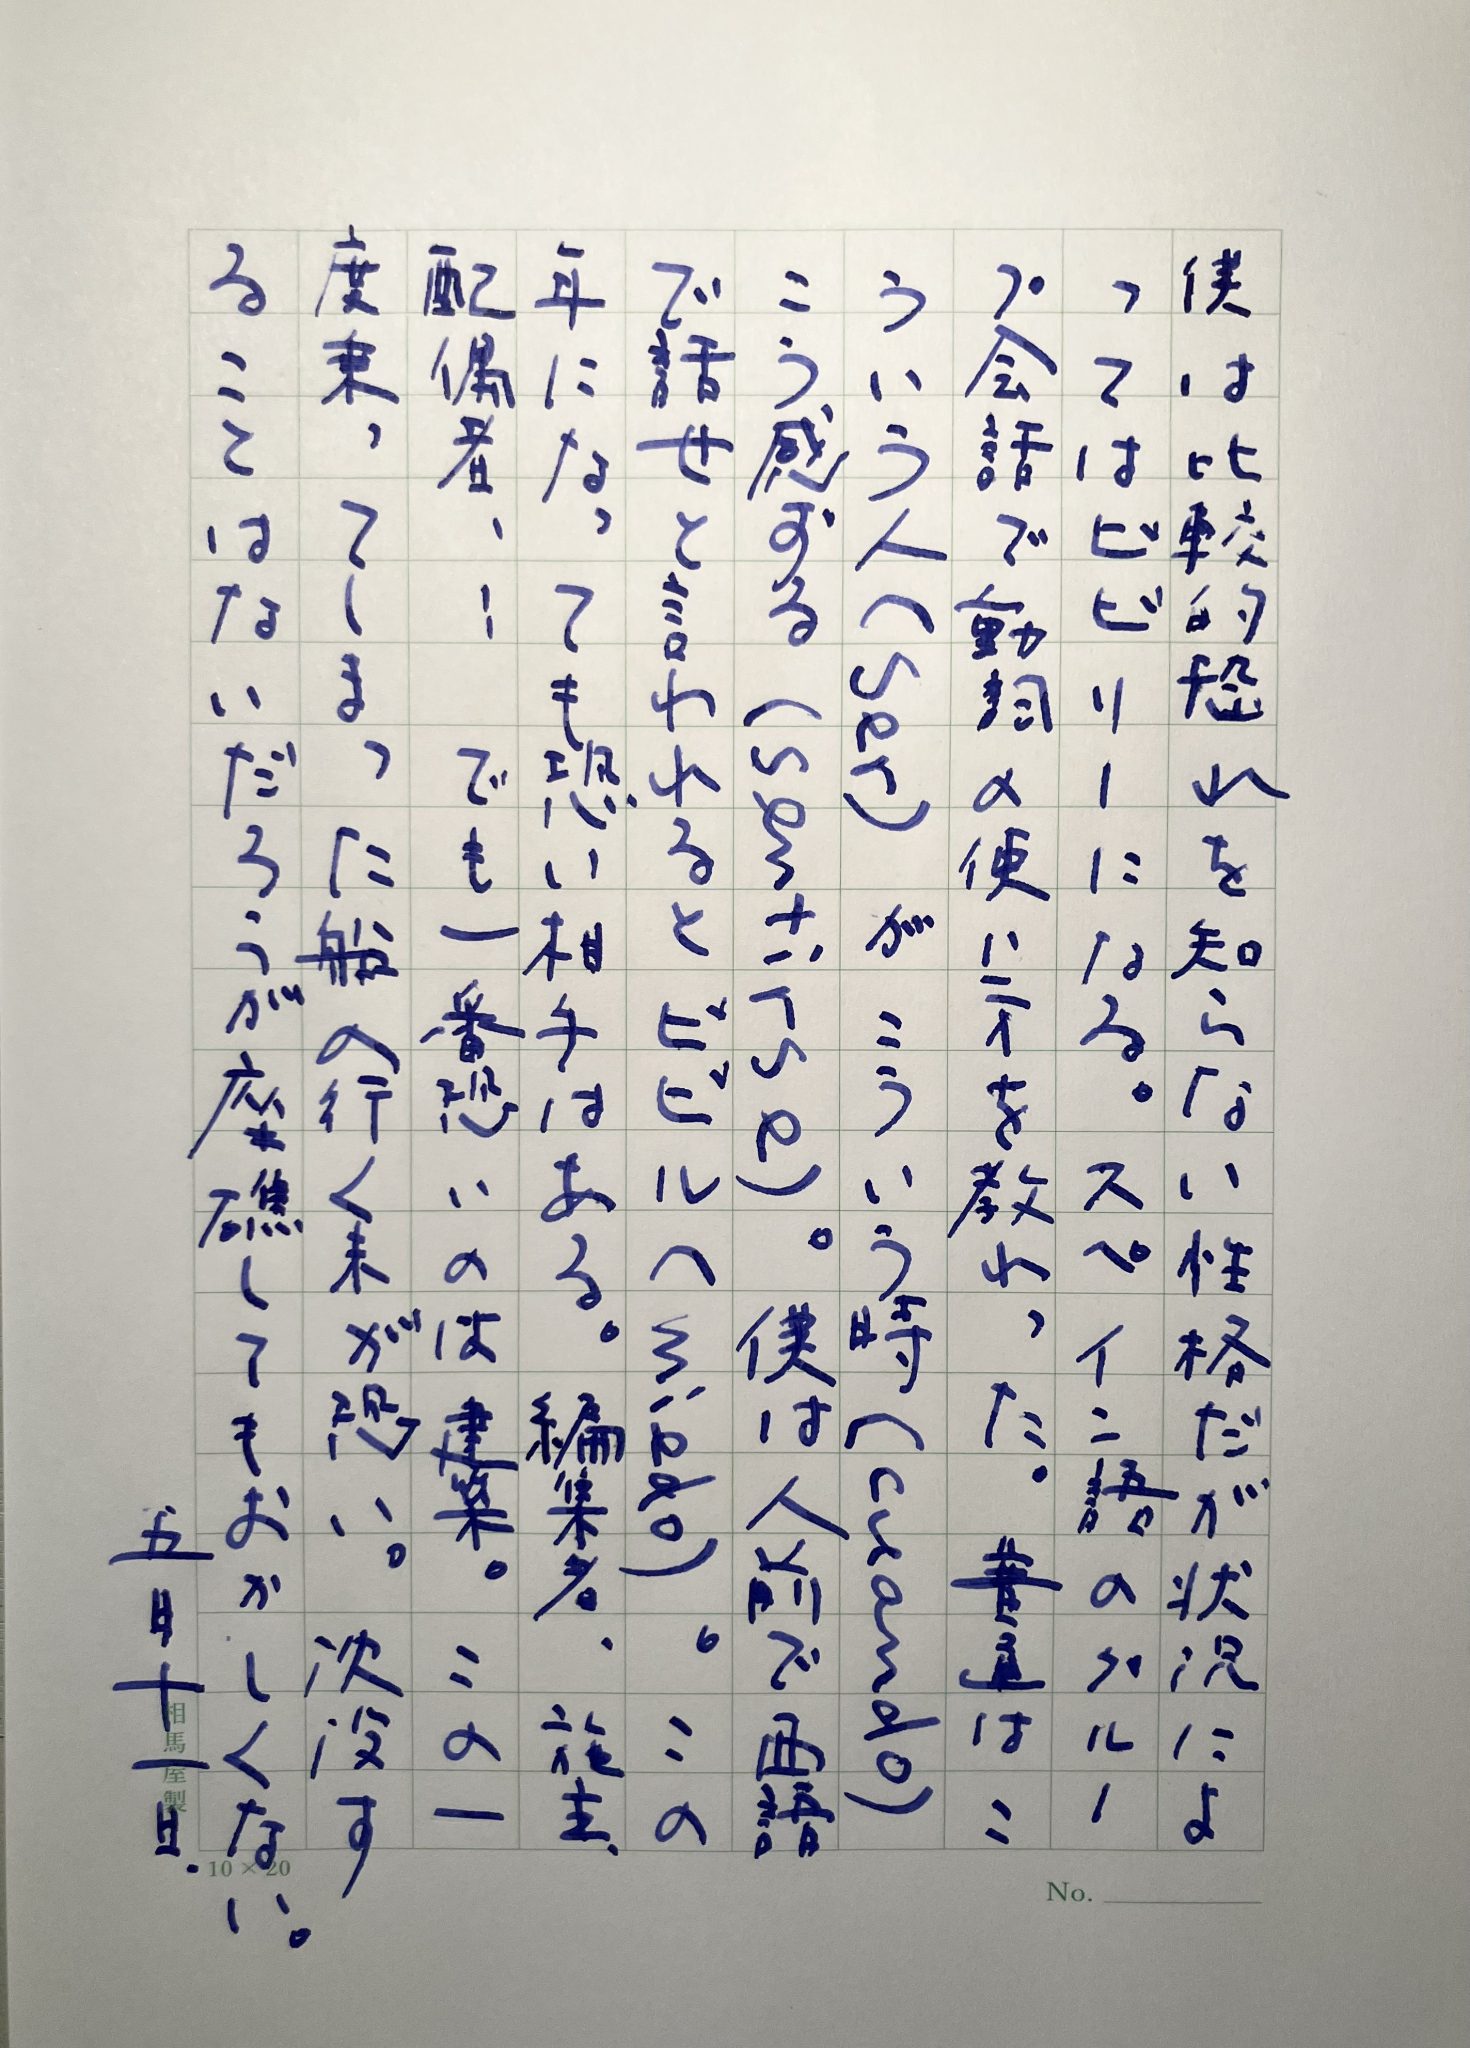 僕は比較的恐れを知らない性格だが状況によ
ってはビビリーになる。スペイン語のグルー
プ会話で動詞の使い方を教わった。普通はこ
ういう人(ser)がこういう時(cuando)
こう感ずる(se siente)。僕は人前で西語
で話せと言われるとビビル(miedo)。この
年になっても恐い相手はある。編集者、施主、
配偶者、！でも一番恐いのは建築。この一
度乗ってしまった船の行く末が恐い。沈没す
ることはないだろうが座礁してもおかしくない。
五月十一日.
相馬屋製
10×20
No.